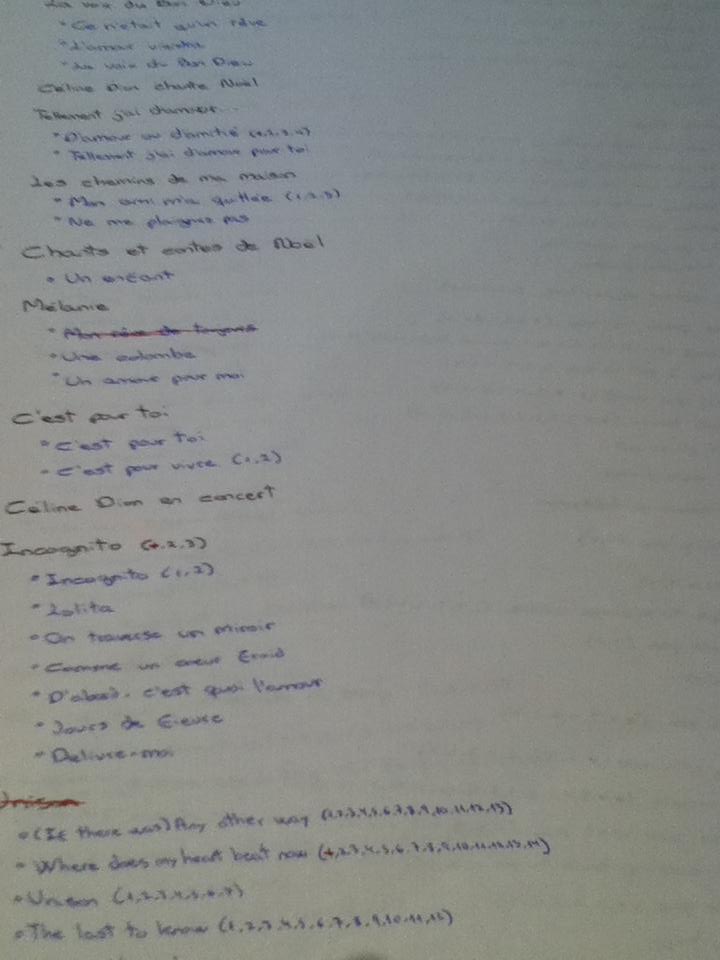 La voix du Bon Dieu
• Ce n'était qu'un rêve
• L'amour viendra
• La voix du Bon Dieu
Céline Dion chante Noël
Tellement j'ai d'amour...
• D'amour ou d'amitié (1,2,3,4)
• Tellement j'ai d'amour pour toi
Les chemins de ma maison
• Mon ami m'a quittée (1,2,3)
• Ne me plaignez pas
Chants et contes de Noël
• Un enfant
Mélanie
• Mon rêve de toujours
• Une colombe
• Un amour pour moi
C'est pour toi
• C'est pour toi
• C'est pour vivre (1,2)
Céline Dion en concert
Incognito (1,2,3)
• Incognito (1,2)
• Lolita
• On traverse un miroir
• Comme un coeur froid
• D'abord, c'est quoi l'amour
• Jours de fièvre
• Delivre-moi
Unison
• (If there was) Any other way (1,2,3,4,5,6,7,8,9,10,11,12,13)
• Where does my heart beat now (1,2,3,4,5,6,7,8,9,10,11,12,13,14)
• Unison (1,2,3,4,5,6,7)
• The last to know (1,2,3,4,5,6,7,8,9,10,11,12)